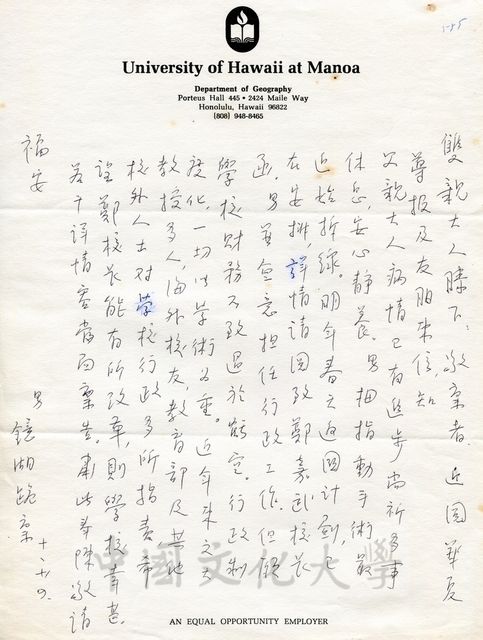 1-85
University of Hawaii at Manoa
Department of Geography
Porteus Hall 445 • 2424 Maile Way
Honolulu, Hawaii 96822
(808) 948-8465
雙親大人膝下:敬稟者 近閱華夏
導報及友朋來信,知
父親大人病情已有進步,尚祈多事
休息,安心靜養。男拇指動手術,最
近始拆線。明年春之返國計劃,已
在安排,詳情請閱致鄭嘉武校長
函,男無意担任行政工作。但願
學校財務不致過於虧空。行政制
度化,一切以學術為重。近年來文大
教授多人,海外校友,教育部及其他
校外人士對學校行政多所指責,希
望鄭校長能有所改革,則學校幸甚。
若干詳情容當面稟告。肅此奉陳 敬請
福安
男 鏡湖跪稟 十、十九.
中國文化大學
AN EQUAL OPPORTUNITY EMPLOYER